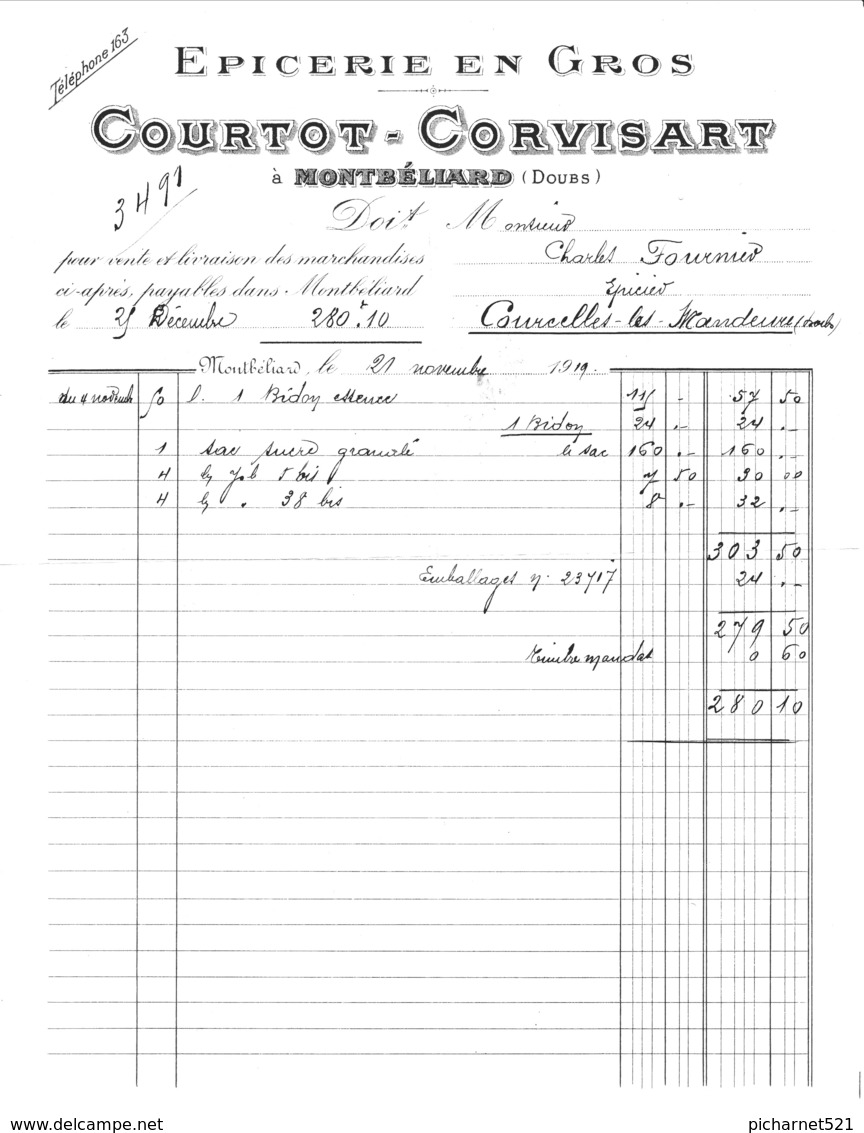 Téléphone 163
EPICERIE EN GROS
COURTOT - CORVISART
à MONTBÉLIARD (DOUBS)
3491
Doit Monsieur
pour vente et livraison des marchandises Charles Fournier
ci-après, payables dans Montbéliard Epicier
le 25 Décembre 280.10 Courcelles-les-Mandeure (Doubs)
Montbéliard, le 21 novembre 1919
du 4 novemb 50 l. 1 Bidon essence 115 - 57 50
1 Bidon 24 .- 24 .-
1 sac sucre granulé le sac 160 .- 160 .-
4 5 bis 7 50 30 00
4 38 bis 8 .- 32 .-
303 50
Emballages n. 23717 24 .-
279 50
Timbre mandat 0 60
280 10
www.delcampe.net
picharnet521